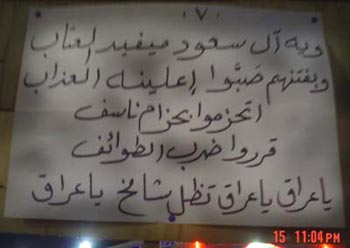 ٠٧٠
ويه آل سعود ميفيد لعتاب
وبفتنهم صبّوا إعلينه العذاب
اتحزموا بحزام ناسف
قرروا ضرب الطوائف
ياعراق ياعراق تظل شامخ ياعراق
15 11:04PM